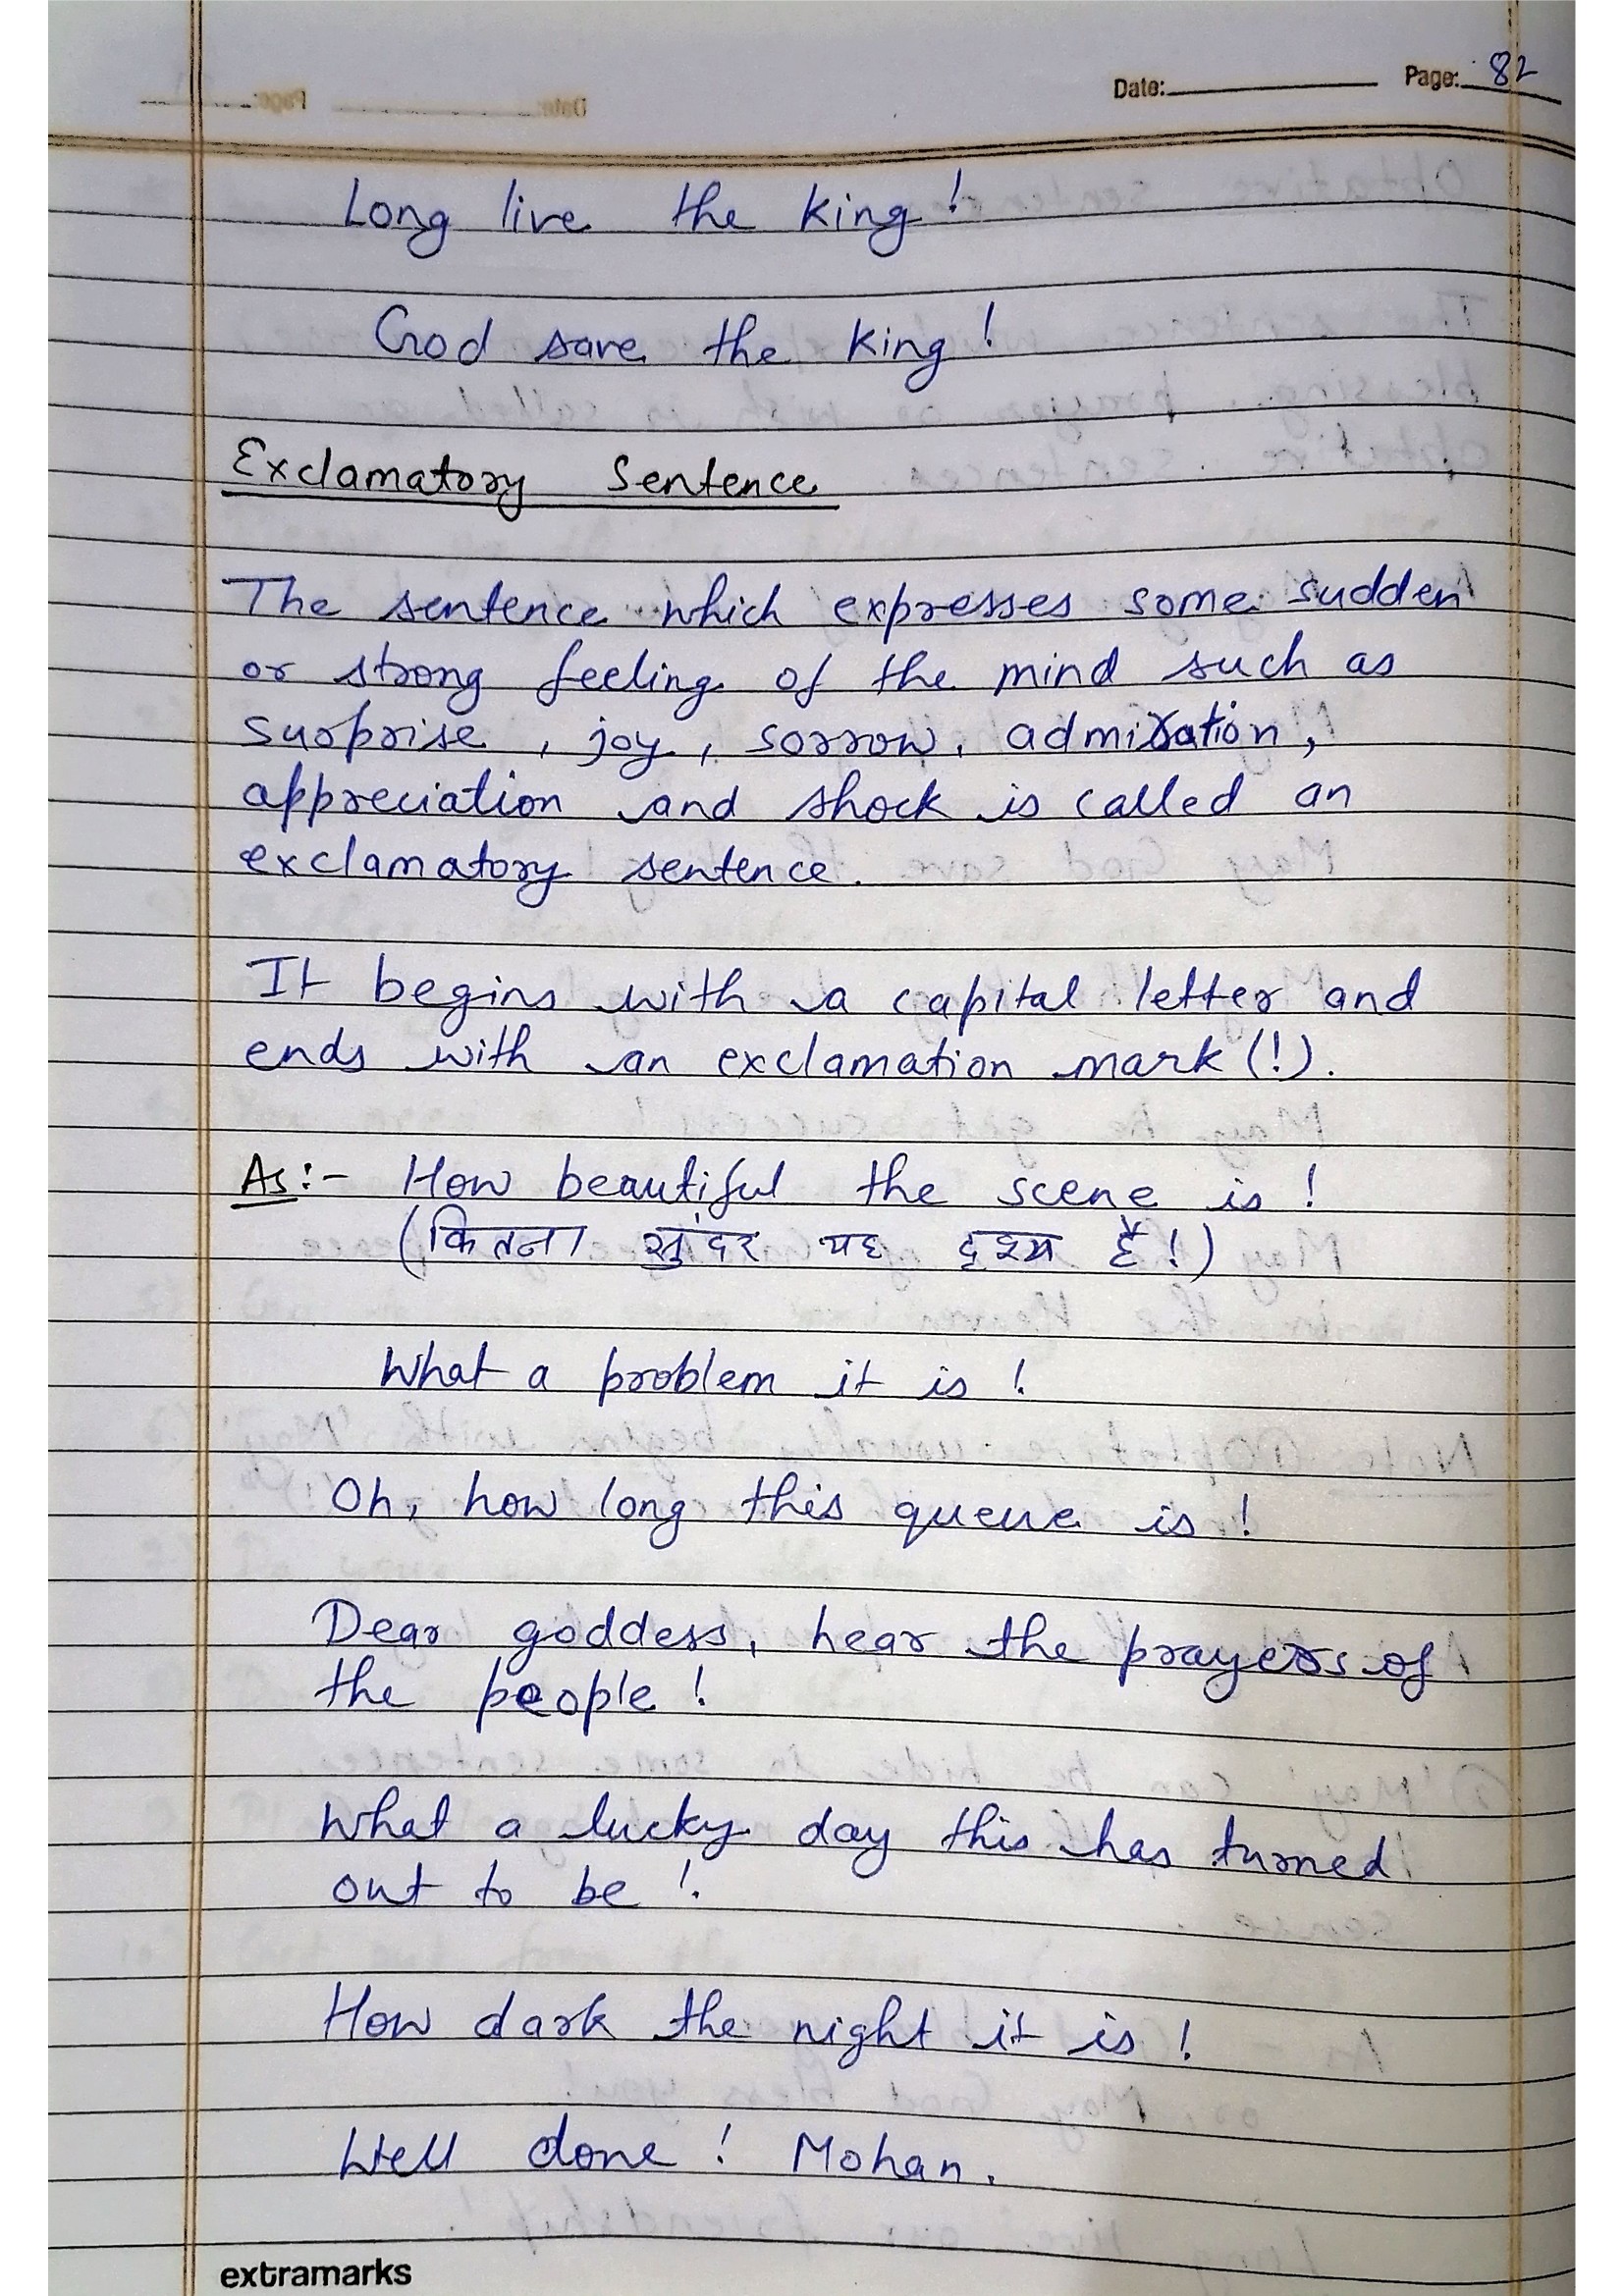 Date: Page: 82
Long live the king!
God save the king!
Exclamatory Sentence
The sentence which expresses some sudden
or strong feeling of the mind such as
surprise, joy, sorrow, admiration,
appreciation and shock is called an
exclamatory sentence.
It begins with a capital letter and
ends with an exclamation mark (!).
As:- How beautiful the scene is!
(कितना सुंदर यह दृश्य है!)
What a problem it is!
Oh, how long this queue is!
Dear goddess, hear the prayers of
the people!
What a lucky day this has turned
out to be!
How dark the night it is!
Well done! Mohan.
extramarks